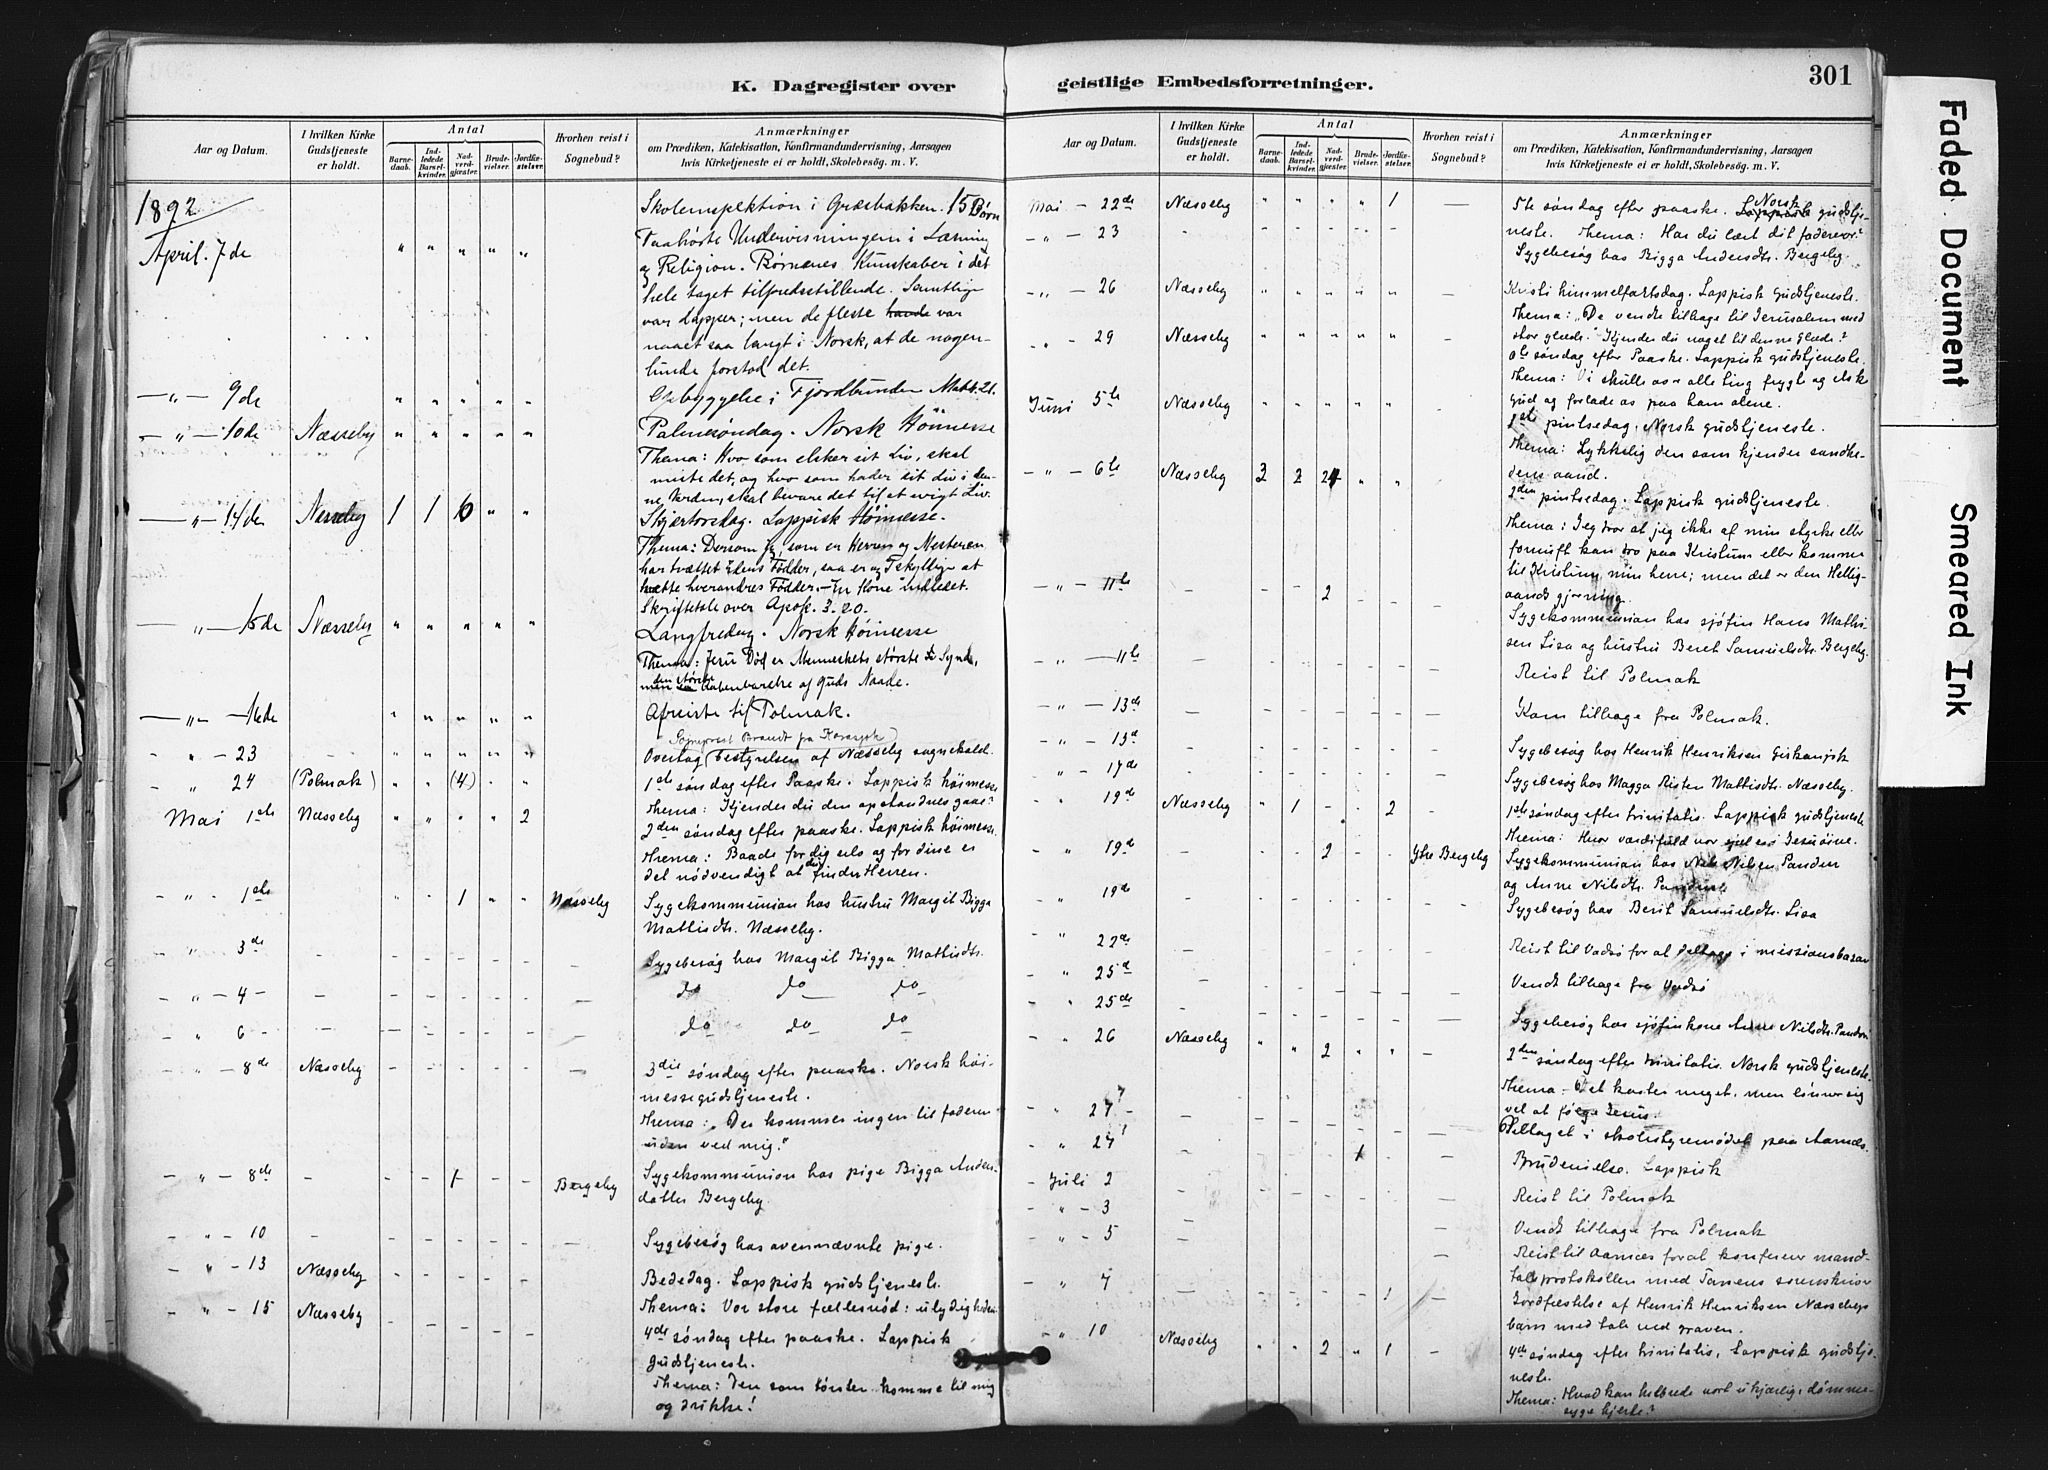 K. Dagregister over geistlige Embedsforretninger. 301
Faded Document
Smeared Ink
Aar og Datum. I hvilken Kirke Gudstjeneste er holdt. Antal Barnedaab. Indledede Barselkvinder. Nadverdgjæster. Brudevielser. Jordfæstelser. Hvorhen reist i Sognebud? Anmærkninger om Prædiken, Katekisation, Konfirmandundervisning, Aarsagen hvis Kirketjeneste ei er holdt, Skolebesøg. m. V.
1892
Skoleinspektion i Græsbakken. 15 Børn
April. 7de " " " " "
Paahørte Undervisningen i Læsning
og Religion. Børnenes Kunskaber i det
hele taget tilfredsstillende. Samtlige
var Lapper; men de fleste havde var
naaet saa langt i Norsk, at de nogen-
lunde forstod det.
— " — 9de " " " " " Opbyggelse i Fjordbunden Matt. 21.
— " — 10de Næsseby " " " " " Palmesøndag. Norsk Höimesse
Thema: Hvo som elsker sit Liv, skal
miste det, og hvo som hader sit Liv i den-
ne Verden, skal bevare det til et evigt Liv.
— " — 14de Næsseby 1 1 6 " " Skjærtorsdag. Lappisk Høimesse.
Thema: Dersom jeg, som er Herren og Mesteren
har tvættet Eders Fødder, saa er og I skyldige at
tvætte hverandres Fødder. – En Kone indledet.
Skriftetale over Apok. 3. 20.
— " — 15de Næsseby " " " " " Langfredag. Norsk Høimesse
Thema: Jesu Død er Menneskets største Synd,
den største
men Aabenbarelse af Guds Naade.
— " — 16de " " " " " Afreiste til Polmak.
Sogneprest Brandt fra Karasjok
- " - 23 " " " " " Overtog Bestyrelsen af Næsseby sognekald.
- " 24 (Polmak) " " (4) " " 1ste søndag efter Paaske. Lappisk høimesse
Thema: Kjender du den opstandnes gave?
Mai 1ste Næsseby " " " " 2 2den søndag efter paaske. Lappisk høimesse.
Thema: Baade for dig selv og for dine er
det nødvendigt at du finder Herren.
- " - 1ste " " 1 " " Næsseby Sygekommunion hos hustru Margit Bigga
Mattisdtr. Næsseby.
- " 3de - - - - - - Sygebesøg hos Margit Bigga Mattisdtr.
- " - 4 - - - - - - - - do do do
- " 6 - - - - - - - - do do do
- " - 8de Næsseby - - - - - - 3die søndag efter paaske. Norsk høi-
messegudstjeneste.
Thema: „Der kommer ingen til faderen
uden ved mig.”
- " - 8de - - - 1 - - Bergeby Sygekommunion hos pige Bigga Anders-
datter Bergeby.
- " - 10 - - - - - - - Sygebesøg hos ovennævnte pige.
- " - 13 Næsseby - - - - - Bededag. Lappisk gudstjeneste.
Thema: Vor store fællesnød: ulydigheden.
- " - 15 Næsseby - - - - - 4de søndag efter paaske. Lappisk
gudstjeneste.
Thema: Den som tørster komme til mig
og drikke!
Aar og Datum. I hvilken Kirke Gudstjeneste er holdt. Antal Barnedaab. Indledede Barselkvinder. Nadverdgjæster. Brudevielser. Jordfæstelser. Hvorhen reist i Sognebud? Anmærkninger om Prædiken, Katekisation, Konfirmandundervisning, Aarsagen hvis Kirketjeneste ei er holdt, Skolebesøg. m. V.
Mai - 22de Næsseby " " " " 1 — 5te søndag efter paaske. Lappisk Norsk gudstje-
neste. Thema: Har du lært dit fadervor?
- " - 23 - - - - - - Sygebesøg hos Bigga Andersdtr. Bergeby.
- " - 26 Næsseby " " " " " — Kristi himmelfartsdag. Lappisk gudstjeneste.
Thema: „De vendte tilbage til Jerusalem med
stor glæde.” Kjender du noget til denne Glæde?
" - 29 Næsseby " " " " " 6te søndag efter Paaske. Lappisk gudstjeneste.
Thema: Vi skulle over alle ting frygte og elske
Gud og forlade os paa ham alene.
Juni 5te Næsseby " " " " " - 1ste pintsedag. Norsk gudstjeneste.
Thema: Lykkelig den som kjender sandhe-
dens aand.
- " - 6te Næsseby 3 2 24 " " 2den pintsedag. Lappisk gudstjeneste.
Thema: Jeg tror at jeg ikke af min styrke eller
fornuft kan tro paa Kristum eller komme
til Kristum min herre; men det er den Hellig-
aands gjerning.
- " - 11te - - 2 - - Sygekommunion hos sjøfin Hans Mathi-
sen Lisa og hustru Beret Samuelsdtr. Bergeby.
- " - 11te - - - - - - Reist til Polmak
- " - 13de - - - - - - Kom tilbage fra Polmak.
- " - 13d - - - - - - Sygebesøg hos Henrik Henriksen
- " - 17de - - - - - - Sygebesøg hos Magga Risten Mattisdtr. Næsseby.
" 19de Næsseby " 1 - - 2 - 1ste søndag efter trinitatis. Lappisk gudstjeneste
Thema: Hvor værdifuld vor sjel er i Jesu øine.
" 19de - - - 2 - - Ytre Bergeby Sygekommunion hos Nils Nilsen Pander
og Anne Nilsdtr. Pander
" 19de - - - - - - Sygebesøg hos Berit Samuelsdtr. Lisa
- " 22de - - - - - - Reist til Vadsø for at deltage i missionsbasar
- " 25d - - - - - - Vendt tilbage fra Vadsø
- " 25de - - - - - - Sygebesøg hos sjøfinkone Anne Nilsdtr. Pander
- " 26 Næsseby " " 2 " " - 2den søndag efter trinitatis. Norsk gudstjeneste.
Thema – Det koster meget, men lønner sig
vel at følge Jesus.
- " 27 - - - - - - Deltaget i skolestyremødet paa Aarnæs.
- " 27 - - - - 1 - - Brudevielse. Lappisk
- Juli 2 - - - - - - Reist til Polmak
- " - 3 - - - - - - Vendt tilbage fra Polmak
- " - 5 - - Reist til Aarnæs for at konferere mand-
talsprotokollen med Tanens sorenskriver
- " 7 - - - - - 1 - Jordfæstelse af Henrik Henriksen Næssebys
barn med tale ved graven.
- " 10 Næsseby " " 2 " 1 - 4de søndag efter trinitatis. Lappisk gudstje-
neste.
Thema: Hvad kan helbrede vort ukjærlige, dømme-
syge hjerte?